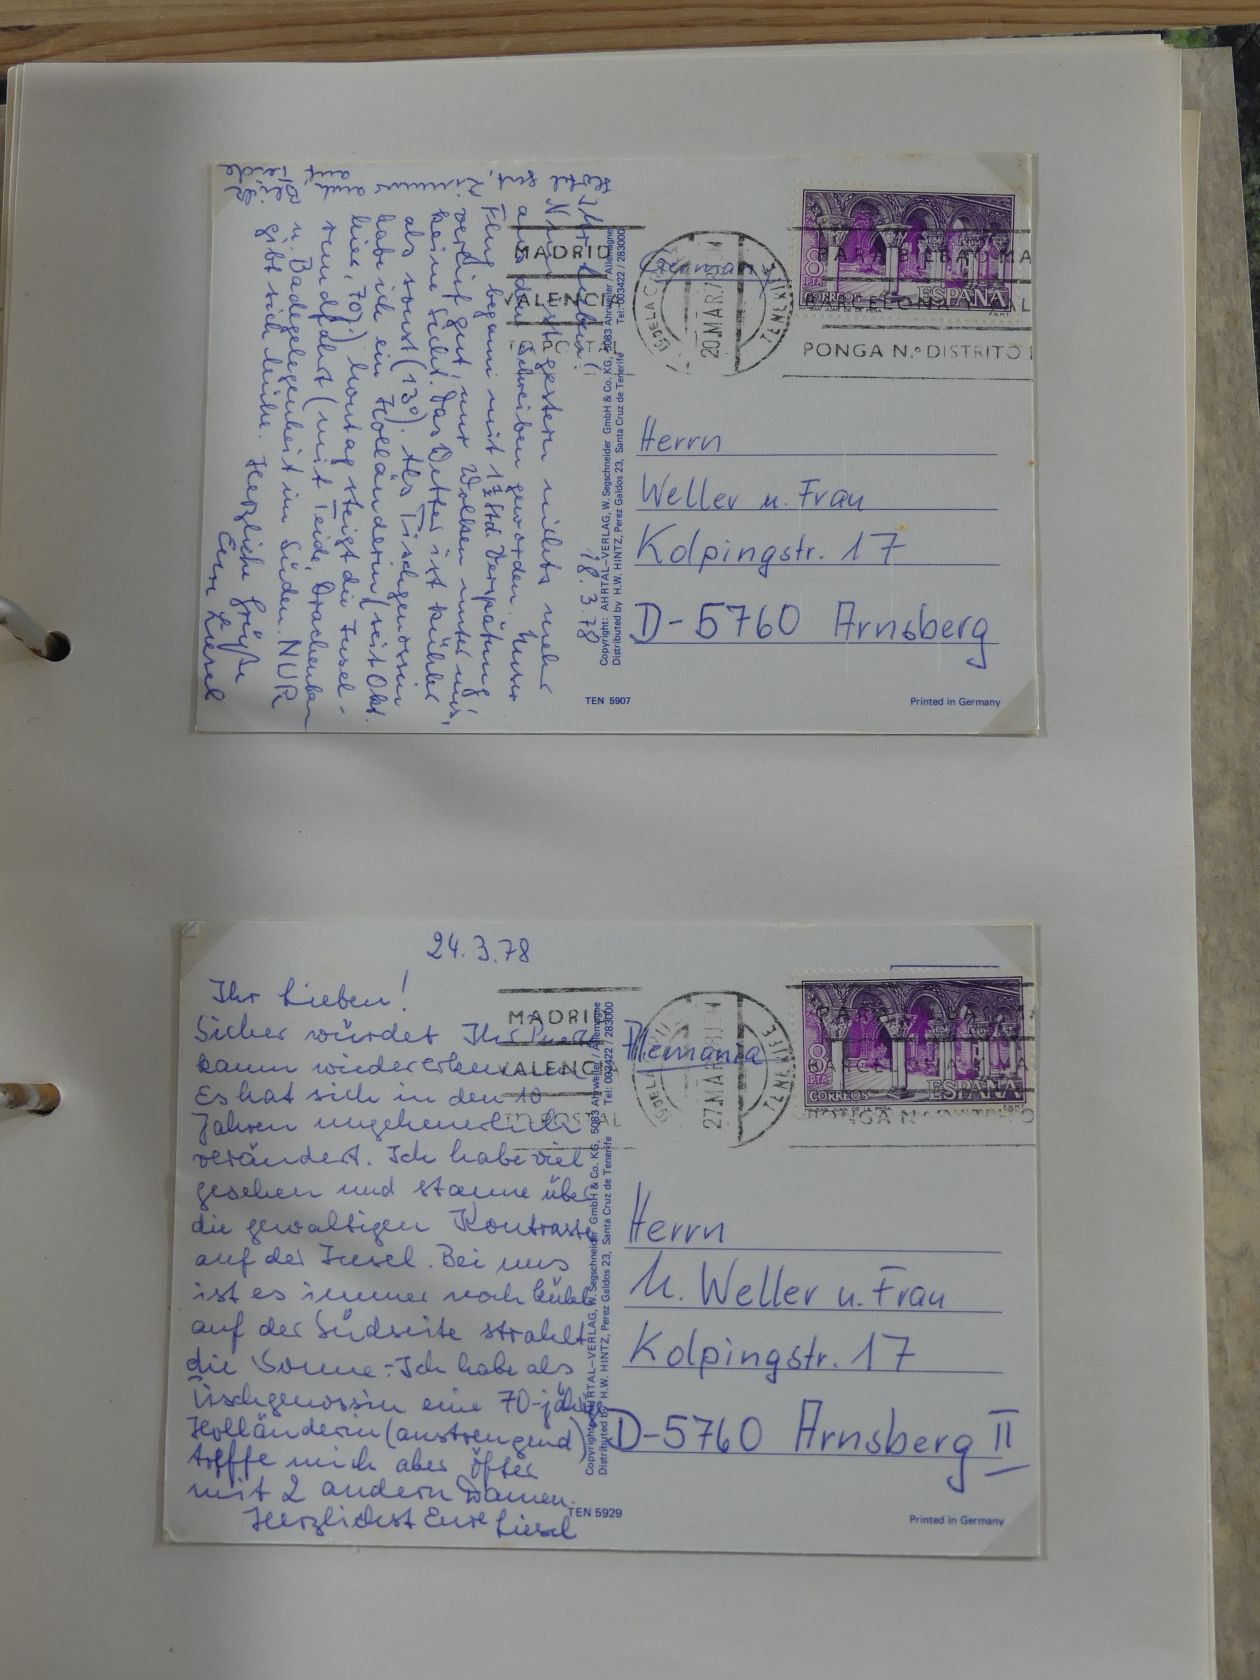 18.3.78
Ihr Lieben!
Nun ist gestern nichts mehr
aus dem Schreiben geworden. Unser
Flug begann mit 1½ Std. Verspätung,
verlief gut, nur Wolken unter uns,
keine Sicht. Das Wetter ist kühler
als sonst (13°). Als Tischgenossin
habe ich ein Holländerin (seit Okt.
hier, 70j.) Montag steigt die Insel-
rundfahrt (mit Teide, Drachenbaum
u. Badegelegenheit im Süden. NUR
gibt sich Mühe. Herzliche Grüße
Eure Liesel
Hotel
gut,
Zimmer
auch
MADRID
VALENCIA
TO POSTAL
Germany
20.MAR.78
TENERIFE
8
PTA
CORREOS
ESPAÑA
PARA BILBAO MA
BARCELONA
PONGA N.º DISTRITO
Herrn
Weller u. Frau
Kolpingstr. 17
D-5760 Arnsberg
Copyright: AHRTAL-VERLAG, W. Segschneider GmbH & Co. KG, 5083 Ahrweiler / Allemagne
Distributed by H.W. HINTZ, Perez Galdos 23, Santa Cruz de Tenerife Tel: 003422 / 283000
TEN 5907
Printed in Germany
24.3.78
Ihr Lieben!
Sicher würdet Ihr Puerto
kaum wiedererkennen
Es hat sich in den 10
Jahren ungeheuerlich
verändert. Ich habe viel
gesehen und staune über
die gewaltigen Kontraste
auf der Insel. Bei uns
ist es immer noch kühl
auf der Südseite strahlt
die Sonne. Ich habe als
Tischgenossin eine 70-jährige
Holländerin (anstrengend)
treffe mich aber öfter
mit 2 andern Damen.
Herzlichst Eure Liesel
MADRID
VALENCIA
TO POSTAL
Alemania
27.MAR.78
TENERIFE
8
PTA
CORREOS
ESPAÑA
PONGA N.º DISTRITO
Herrn
H. Weller u. Frau
Kolpingstr. 17
D-5760 Arnsberg II
Copyright: AHRTAL-VERLAG, W. Segschneider GmbH & Co. KG, 5083 Ahrweiler / Allemagne
Distributed by H.W. HINTZ, Perez Galdos 23, Santa Cruz de Tenerife Tel: 003422 / 283000
TEN 5929
Printed in Germany